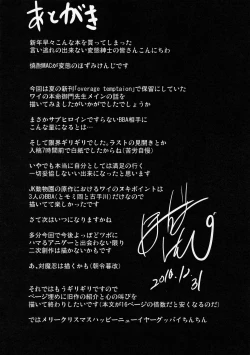 あとがき
新年早々こんな本を買ってしまった
言い逃れの出来ない変態紳士の皆さんこんにちわ
焼酎MACが変態のほずみけんじです
今回は夏の新刊「overage temptaion」で保留にしていた
ワイの本命御門先生メインの話を
描いてみましたがいかがでしたでしょうか
まさかサブヒロインですらないBBA相手に
こんな量になるとは…
そして最後ギリギリでした、ラストの見開きとか
入稿7時間前で白紙でしたからね(苦労自慢)
いやでも本当に自分としては満足の行く
一切妥協しないいい出来になったと思います
JK動物園の原作におけるワイのヌキポイントは
3人のBBA(とモミ岡と古手川)だけなので
描いてて楽しかったです
さて次はいつになりますか
多分今回で今後よっぽどツボに
ハマるアニゲーと出会わない限り
二次創作は描かないかもです
あ、対魔忍は描くかも(朝令暮改)
それではもうギリギリですので
ページ埋めに旧作の紹介と心の叫びを
描いて終わりたいです(本文が10ページの倍数だと安くなるのだ)
ではメリークリスマスハッピーニューイヤーグッバイちんちん
2018.12
31